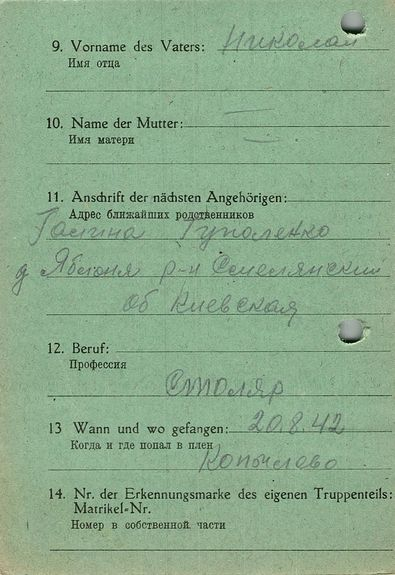 9. Vorname des Vaters: Николай
Имя отца
10. Name der Mutter: —
Имя матери —
11. Anschrift der nächsten Angehörigen:
Адрес ближайших родственников
Галина Гуполенко
д Яблоня р-н Смелянский
об Киевская
12. Beruf:
Профессия
Столяр
13 Wann und wo gefangen: 20.8.42
Когда и где попал в плен
14. Nr. der Erkennungsmarke des eigenen Truppenteils:
Matrikel-Nr.
Номер в собственной части